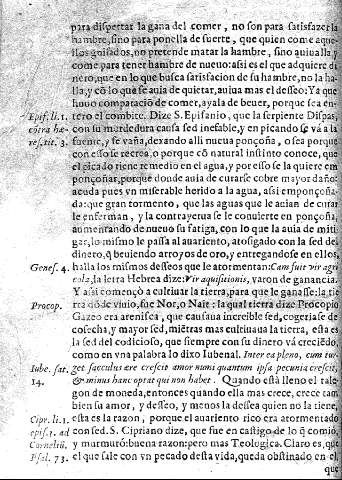 para dispertar la gana del comer, no son para satisfazer la
hambre, sino para ponella de fuerte, que quien come aque-
llos guisados, no pretende matar la hambre, sino auiualla y
come para tener hambre de nueuo: assi es el que adquiere di-
nero, que en lo que busca satisfacion de su hambre, no la ha-
lla, y cō lo que se auia de quietar, auiua mas el desseo: Ya que
huuo comparaciō de comer, aya la de beuer, porque sea en-
tero el combite. Dize S. Epifanio, que la serpiente Dispas,
con su mordedura causa sed insefable, y en picando se vá a la
fuente, y se vaña, dexando alli nueua ponçoña, o sea porque
con esso se recrea, o porque cō natural instinto conoce, que
el picado tiene remedio en el agua, y por esso se la quiere em
ponçoñar, porque donde auia de curarse cobre mayor daño:
acuda pues vn miserable herido a la agua, assi emponçoña-
da: que gran tormento, que las aguas que le auian de curar
le enferman, y la contrayerua se le conuierte en ponçoña,
aumentando de nueuo su fatiga, con lo que la auia de miti-
gar, lo mismo le passa al auariento, atosigado con la sed del
dinero, q̄ beuiendo arroyos de oro, y entregandose en ellos,
halla los mismos desseos que le atormentan: Cam fuit vir agri
cola, la letra Hebrea dize: Vir aquisitionis, varon de ganancia.
Y assi começó a cultiuar la tierra, para que le ganasse: la tie
rra dōde viuio, fue Nor, o Nait: la qual tierra dize Procopio
Gazeo era arenisca, que causaua increible sed, cogeriase de
cosecha, y mayor sed, miētras mas cultiuaua la tierra, esta es
la sed del codicioso, que siempre con su dinero vá creciēdo,
como en vna palabra lo dixo Iubenal. Interea pleno, cum tur-
get sacculus ære crescit amor numi quantum ipsa pecunia crescit,
& minus hanc optat qui non habet. Quando está lleno el talę
gon de moneda, entonces quando ella mas crece, crece tam
bien su amor, y desseo, y menos la dessea quien no la tiene,
esta es la razon, porque el auariento rico era atormentado
con sed. S. Cipriano dize, que fue en castigo de lo q̄ comió,
y murmuró: buena razon: pero mas Teologica. Claro es, que
el que sale con vn pecado desta vida, queda obstinado en el,
que
Epif. li. 1.
cōtra hæ-
res. tit. 3.
Genes. 4.
Procop.
Iube. sat.
14.
Cipr. li. 1.
epis. 1. ad
Corneliū,
Psal. 73.